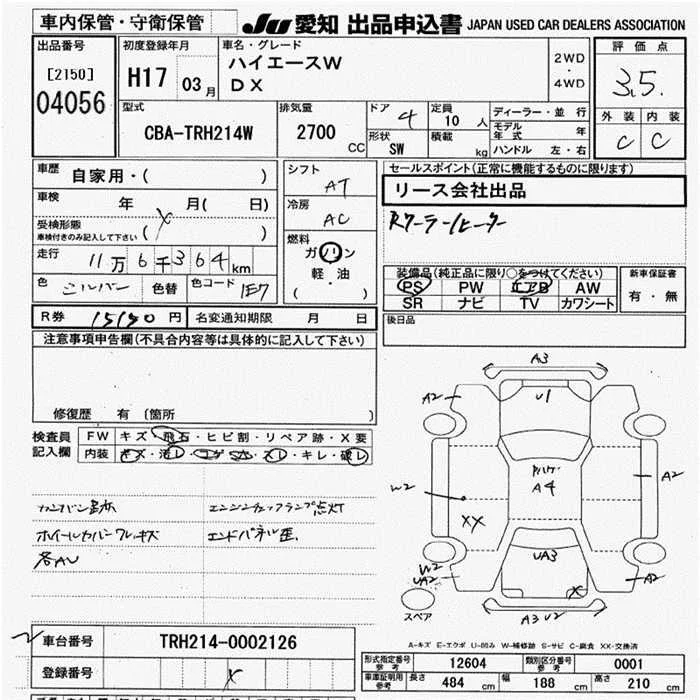 車内保管・守衛保管
JU 愛知 出品申込書 JAPAN USED CAR DEALERS ASSOCIATION
出品番号
[2150]
04056
初度登録年月
H17 03月
車名・グレード
ハイエースW
DX
2WD
・
4WD
評価点
3.5.
外装 内装
C C
型式
CBA-TRH214W
排気量
2700 CC
ドア 4
形状 SW
定員 10 人
積載 kg
ディーラー・並行
モデル年式 年
ハンドル 左・右
車歴 自家用・( )
車検 年 月( 日)
受検形態
車検付きのみ記入して下さい ( )
走行 11万6千364km
色 シルバー 色替 色コード 1E7
シフト AT
冷房 AC
燃料
ガソリン
軽・油
( )
セールスポイント(正常に機能するものに限ります)
リース会社出品
Rクーラー/ヒーター
装備品(純正品に限り○をつけてください)
PS PW エアB AW
SR ナビ TV カワシート
新車保証書
有・無
後日品
R券 15190円 名変通知期限 月 日
注意事項申告欄(不具合内容等は具体的に記入して下さい)
修復歴 有 〔箇所 〕
検査員
記入欄
FW キズ・飛石・ヒビ割・リペア跡・X要
内装 キズ・汚レ・コゲ穴・スレ・キレ・破レ
エンジンチェックランプ点灯
ホイールカバーワレ・キズ
エンドパネル歪
各AU
A3
A2
U1
A2
W2
A4
XX
UA3
W2
UA2
X
A2
スペア
A3 U2
A-キズ E-エクボ U-凹み W-補修跡 S-サビ C-腐食 XX-交換済
車台番号 TRH214-0002126
登録番号
型式指定番号 参考 12604 類別区分番号 参考 0001
車庫証明用 参考 長さ 484 cm 幅 188 cm 高さ 210 cm